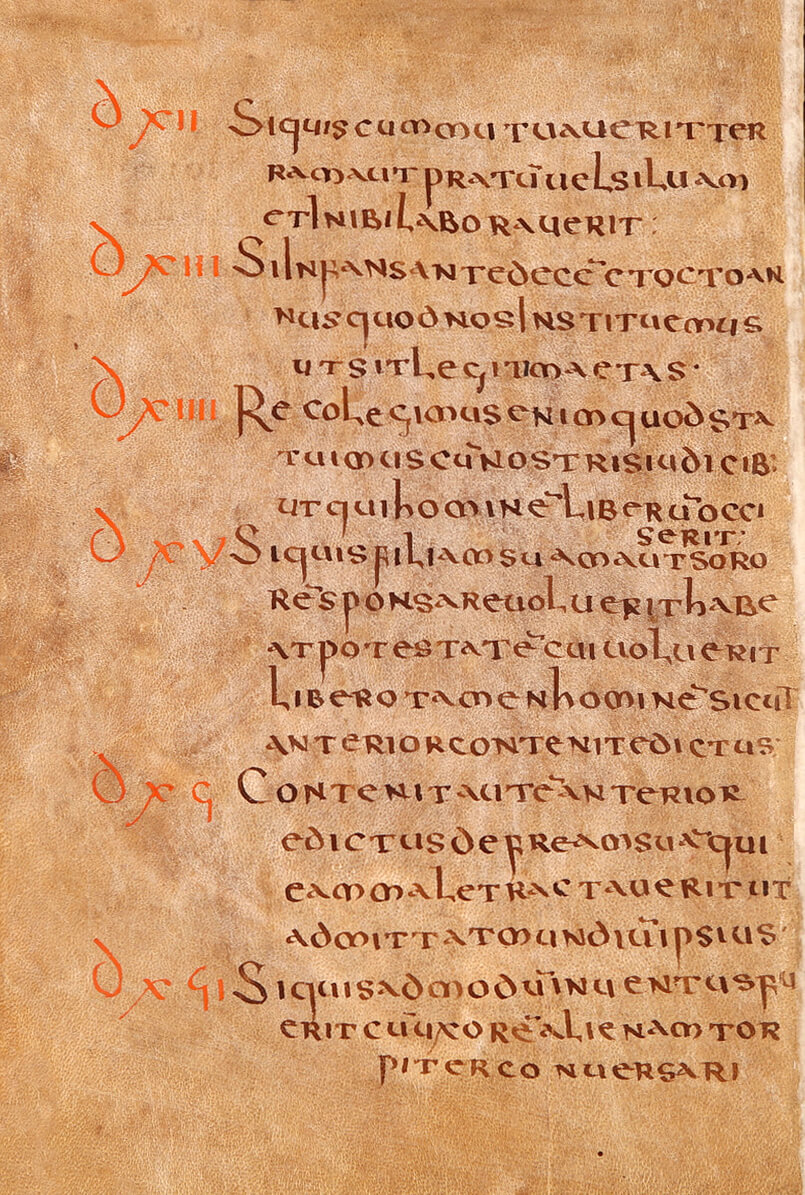 d xii Siquiscummutuaueritter
ramautpratūuelsiluam
etInibilaborauerit:
d xiii SiInfansantedecē etoctoan
nusquodnosInstituemus
utsitlegitimaetas·
d xiiii Recolegimusenimquodsta
tuimuscūnostrisiudicib:
utquihominēliberūocci
serit:
d xv Siquisfiliamsuamautsoro
rēsponsareuoluerithabe
atpotestatēcuiuoluerit
liberotamenhominēsicut
anteriorcontenitedictus·
d xϛ Contenitautēanterior
edictusdefreamsuāqui
eammaletractaueritut
admittatmundiūipsius·
d xϛi Siquisadmodūinuentusfu
eritcūuxorēalienamtor
piterconuersari